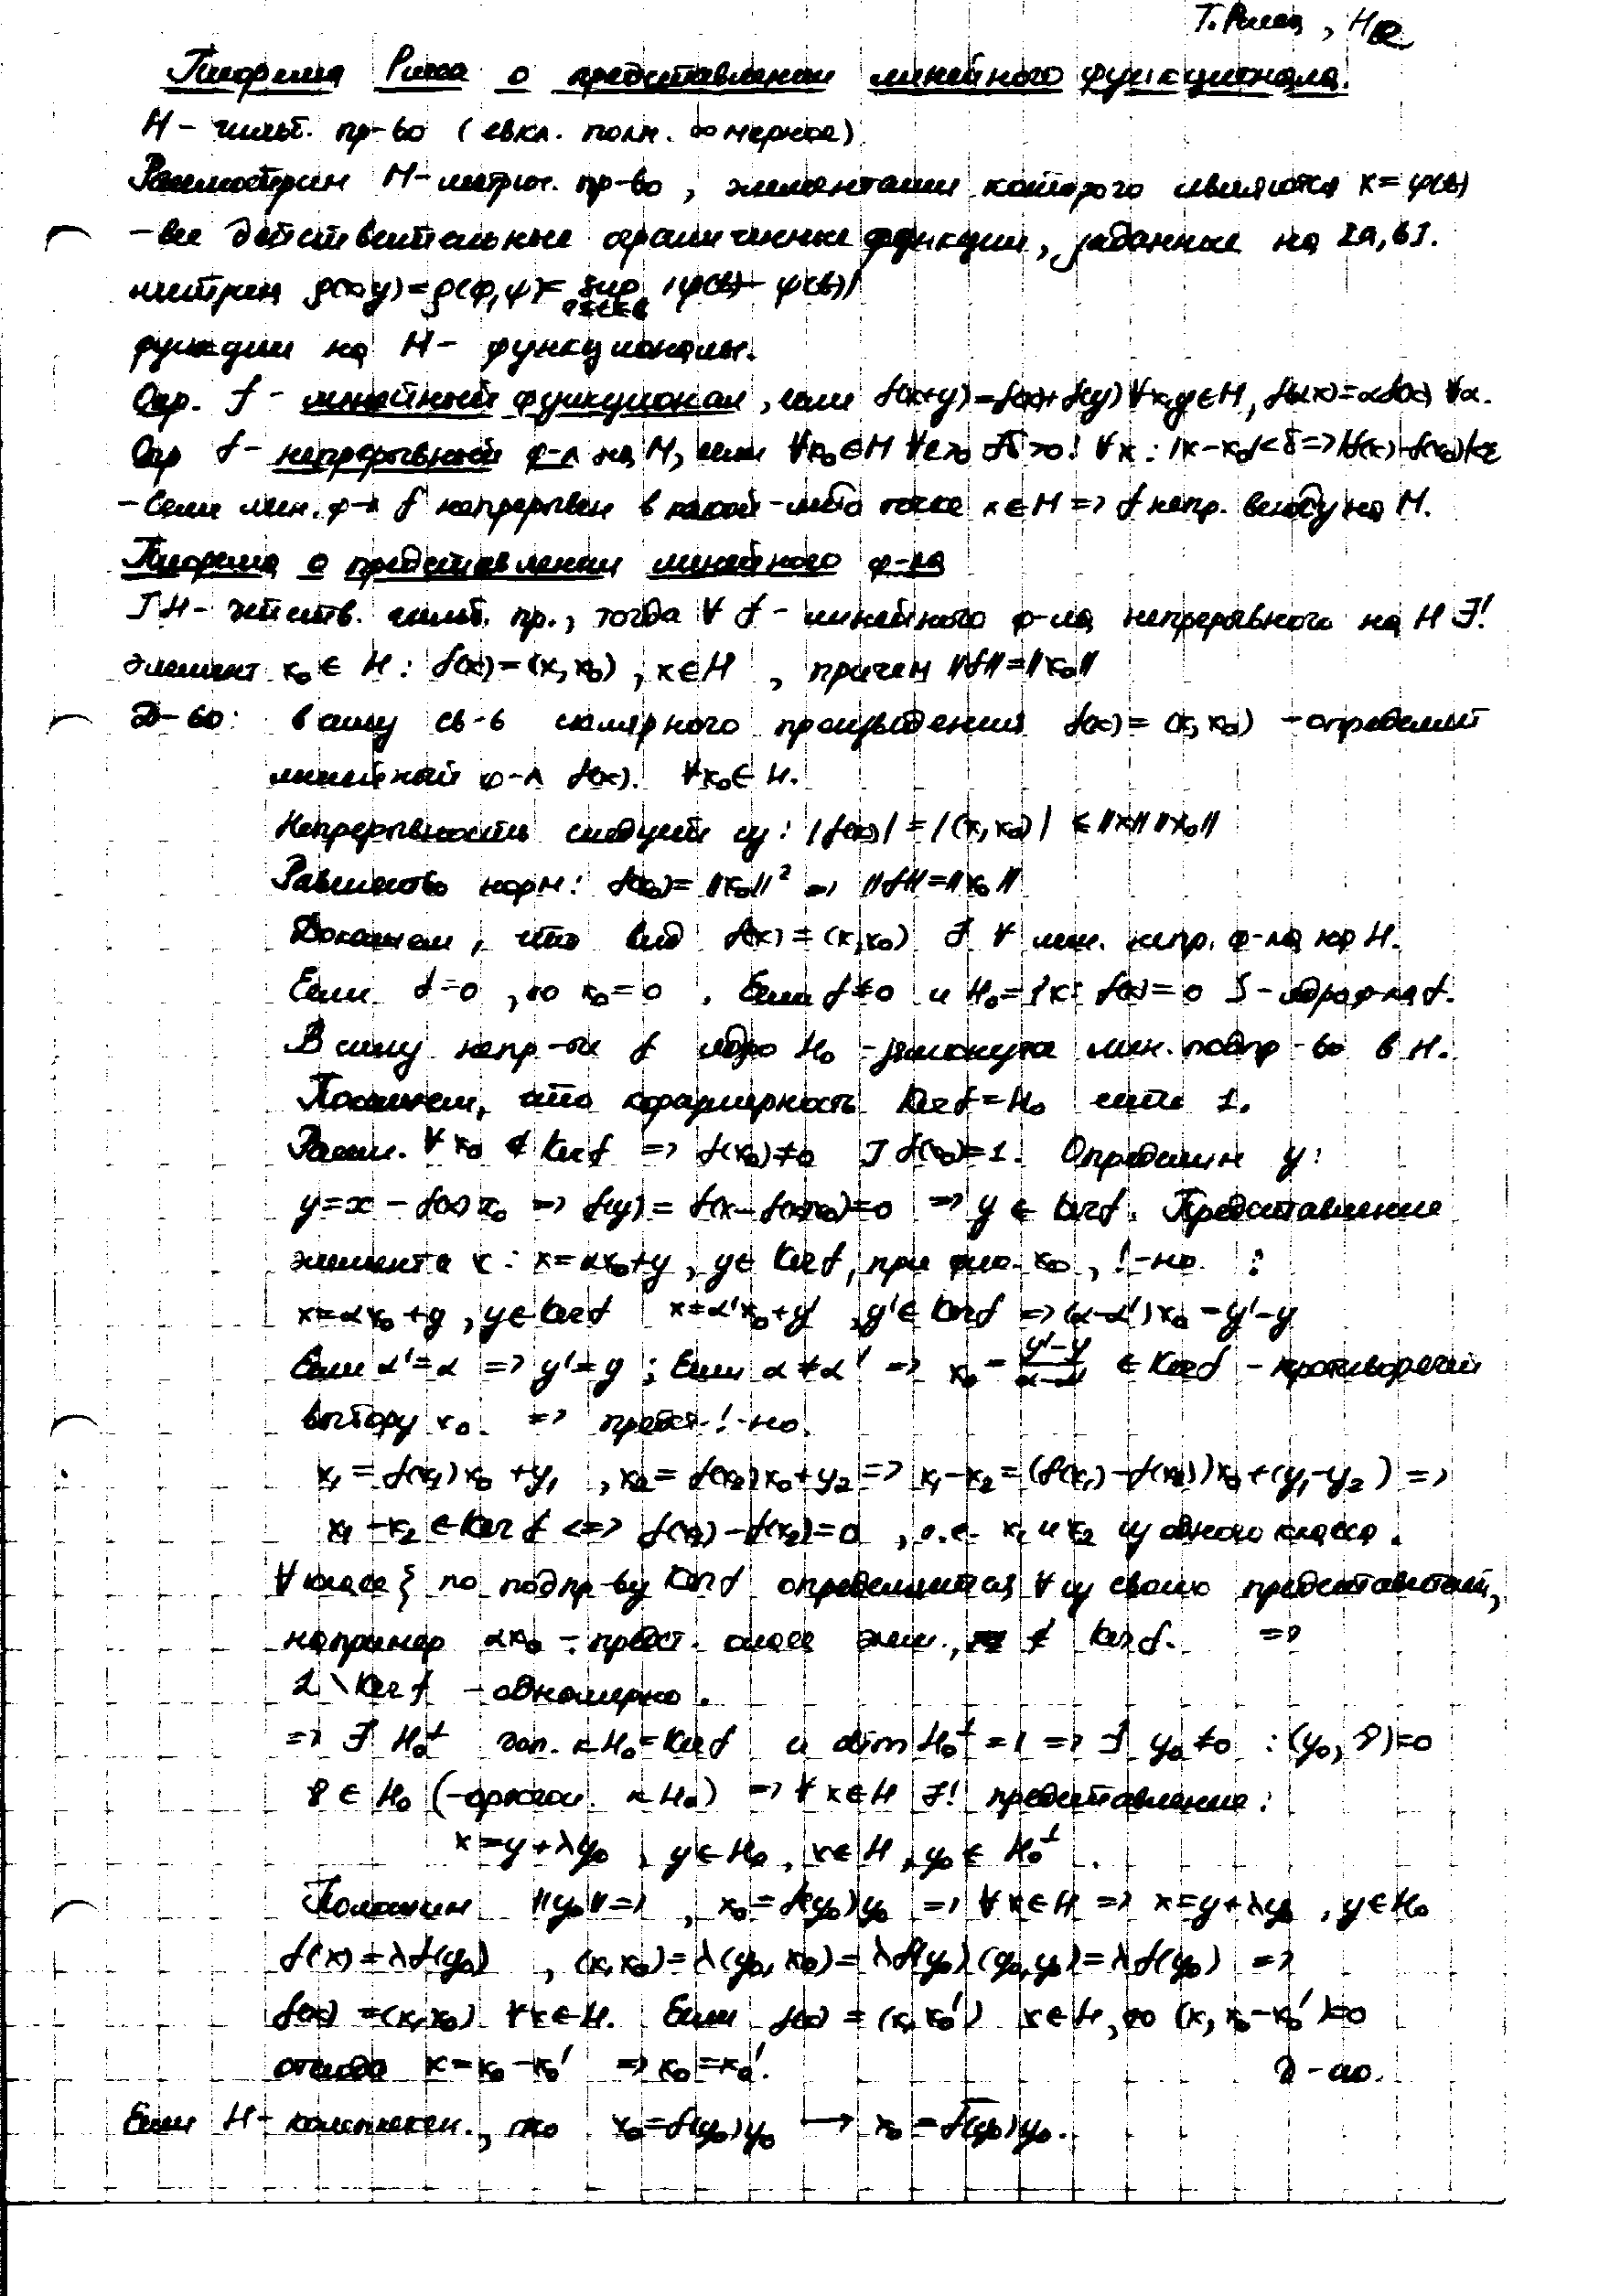 Т. Рисса, H_ℝ
Теорема Рисса о представлении линейного функционала.
H – гильб. пр-во (евкл. полн. ∞ мерное)
Рассмотрим M – метрич. пр-во, элементами которого являются x = φ(t)
– все действительные ограниченные функции, заданные на [a, b].
метрика ρ(x,y) = ρ(φ,ψ) = sup |φ(t) – ψ(t)|
a≤t≤b
функции на H – функционалы.
Опр. f – линейный функционал, если f(x+y) = f(x) + f(y) ∀x,y∈H, f(αx) = αf(x) ∀α.
Опр f – непрерывный ф-л на M, если ∀x₀∈M ∀ε>0 ∃δ>0: ∀x: |x–x₀|<δ => |f(x)–f(x₀)|<ε
– Если лин. ф-л f непрерывен в какой-либо точке x∈M => f непр. всюду на M.
Теорема о представлении линейного ф-ла
] H – действ. гильб. пр., тогда ∀ f – линейного ф-ла непрерывного на H ∃!
элемент x₀ ∈ H : f(x) = (x, x₀), x∈H , причем ||f|| = ||x₀||
Д-во: в силу св-в скалярного произведения f(x) = (x, x₀) – определяет
линейный ф-л f(x). ∀x₀∈ H.
Непрерывность следует из: |f(x)| = |(x, x₀)| ≤ ||x|| ||x₀||
Равенство норм: f(x₀) = ||x₀||² => ||f|| = ||x₀||
Докажем, что вид f(x) = (x, x₀) ∃ ∀ лин. непр. ф-ла на H.
Если f = 0, то x₀ = 0. Если f ≠ 0 и H₀ = {x: f(x) = 0} – ядро ф-ла f.
В силу непр-ти f ядро H₀ – замкнутое лин. подпр-во в H.
Покажем, что коразмерность Ker f = H₀ есть 1.
Рассм. ∀ x₀ ∉ Ker f => f(x₀) ≠ 0 ] f(x₀) = 1. Определим y:
y = x – f(x) x₀ => f(y) = f(x – f(x)x₀) = 0 => y ∈ Ker f. Представление
элемента x: x = αx₀ + y, y∈ Ker f, при фик. x₀, !-но :
x = αx₀ + y, y∈ Ker f x = α'x₀ + y', y'∈ Ker f => (α–α')x₀ = y'–y
Если α' = α => y' = y; Если α ≠ α' => x₀ = (y'–y)/(α–α') ∈ Ker f – противоречит
выбору x₀. => предст. !-но.
x₁ = f(x₁)x₀ + y₁ , x₂ = f(x₂)x₀ + y₂ => x₁–x₂ = (f(x₁) – f(x₂))x₀ + (y₁–y₂) =>
x₁–x₂ ∈ Ker f <=> f(x₁) – f(x₂) = 0, т.е. x₁ и x₂ из одного класса.
∀ класс ξ по подпр-ву Ker f определяется ∀ из своих представителей,
например αx₀ – предст. элем., ∉ Ker f. =>
L \ Ker f – одномерно.
=> ∃ H₀^⊥ доп. к H₀ = Ker f и dim H₀^⊥ = 1 => ∃ y₀ ≠ 0 : (y₀, y) = 0
y ∈ H₀ (–ортогон. к H₀) => ∀ x∈H ∃! представление:
x = y + λy₀ , y∈H₀, x∈H, y₀ ∈ H₀^⊥.
Положим ||y₀|| = 1, x₀ = f(y₀)y₀ => ∀ x∈H => x = y + λy₀, y∈H₀
f(x) = λf(y₀) , (x, x₀) = λ(y₀, x₀) = λf(y₀)(y₀,y₀) = λf(y₀) =>
f(x) = (x, x₀) ∀x∈H. Если f(x) = (x, x₀') x∈H, то (x, x₀–x₀') = 0
отсюда x = x₀ – x₀' => x₀ = x₀'. д-но.
Если H – комплексн., то x₀ = f(y₀)y₀ → x₀ = \overline{f(y₀)}y₀.